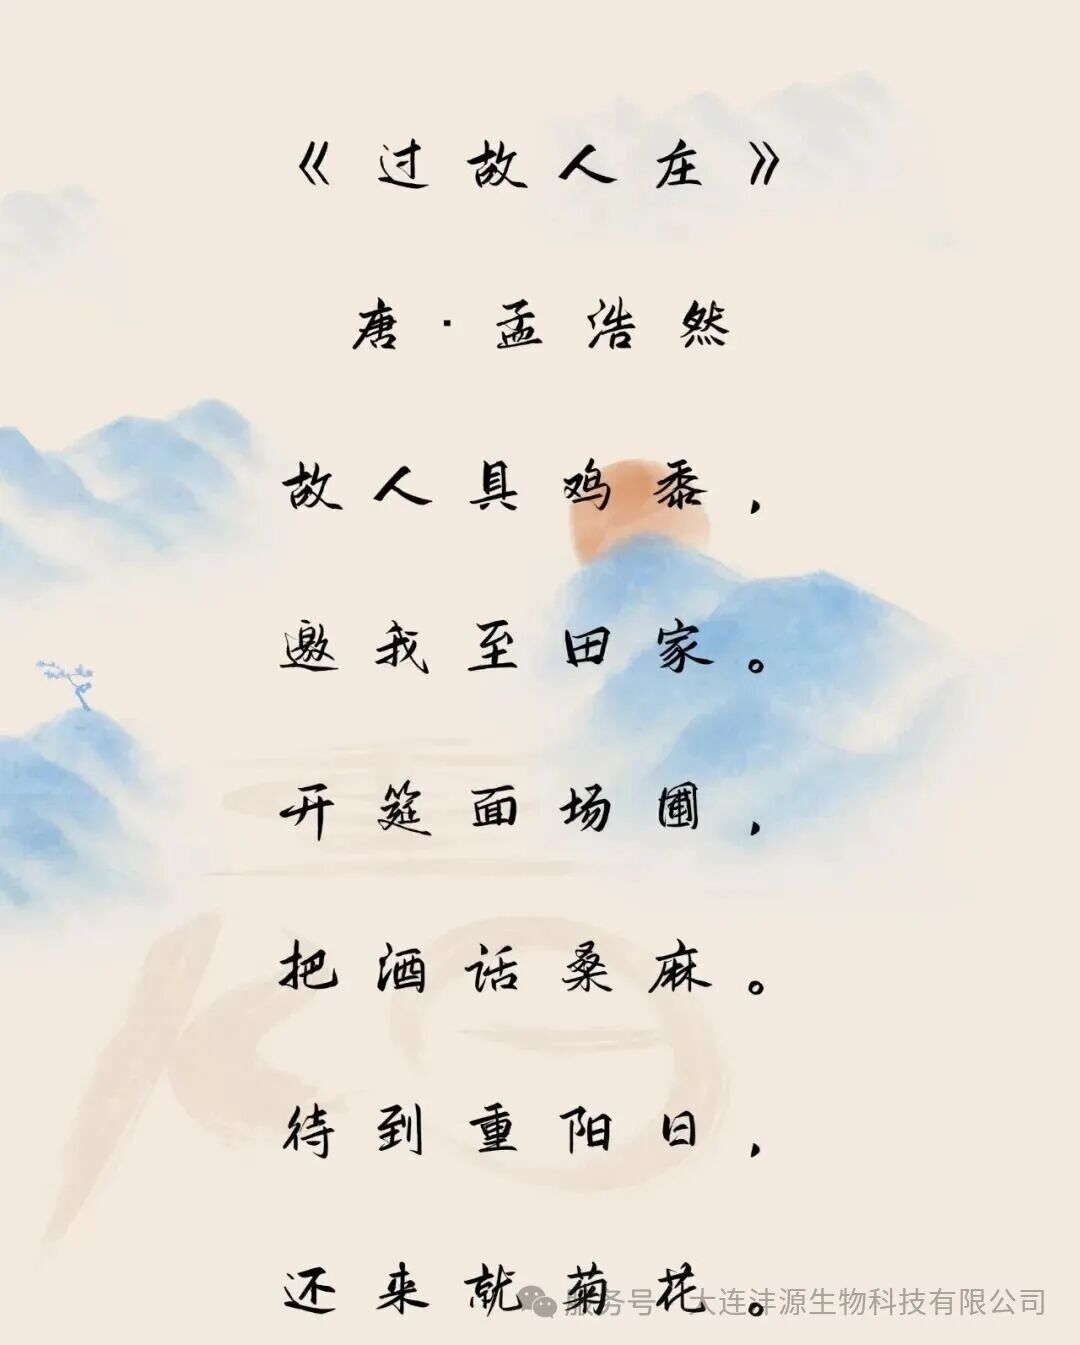 《过故人庄》
唐·孟浩然
故人具鸡黍，
邀我至田家。
开筵面场圃，
把酒话桑麻。
待到重阳日，
还来就菊花。
服务号·大连沣源生物科技有限公司